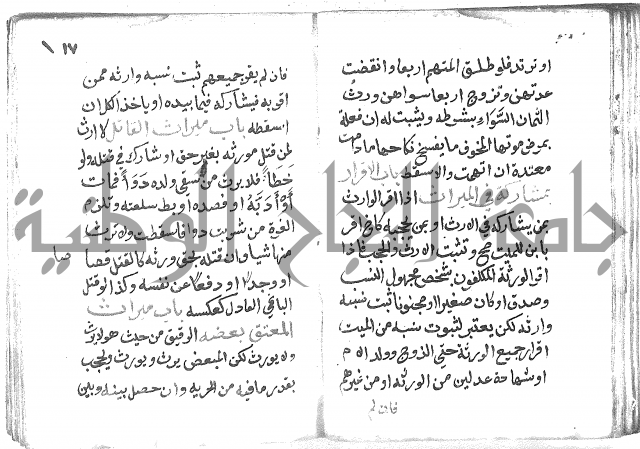 او ترتد فلو طلق المتهم اربعا وانقضت
عدتهن وتزوج اربعا سواهن ورث
الثمان السواء بشرطه ويثبت له ان فعله
بمرض موتها المخوف ما يفسخ نكاحها مادامت
معتدة ان اتهمت والا سقط باب الاقرار
بمشارك في الميراث اذا اقر الوارث
بمن يشاركه في الارث او بمن يحجبه كاخ اقر
بابن للميت صح وثبت الارث والحجب فاذا
اقر الورثة المكلفون بشخص مجهول النسب
وصدق او كان صغيرا او مجنونا ثبت نسبه
وارثه لكن يعتبر لثبوت نسبه من الميت
اقرار جميع الورثة حتى الزوج وولد الام
او شهادة عدلين من الورثة او من غيرهم
فان لم
١٧
فان لم يقر جميعهم ثبت نسبه وارثه ممن
اقر به فيشاركه فيما بيده او ياخذ الكل ان
اسقطه باب ميراث القاتل لا ارث
لمن قتل مورثه بغير حق او شارك في قتله ولو
خطأ فلا يرث من سقى ولده دواء فمات
او ادبه او فصده او بط سلعته وتلزم
الغرة من شربت دواء فاسقطت ولا ترث
منها شيا وان قتله بحق ورثه كالقتل قصاصا
او حدا او دفعا عن نفسه وكذا لو قتل
الباغي العادل كعكسه باب ميراث
المعتق بعضه الرقيق من حيث هو لا يرث
ولا يورث لكن المبعض يرث ويورث ويحجب
بقدر ما فيه من الحرية وان حصل بينه وبين
جامعة النجاح الوطنية